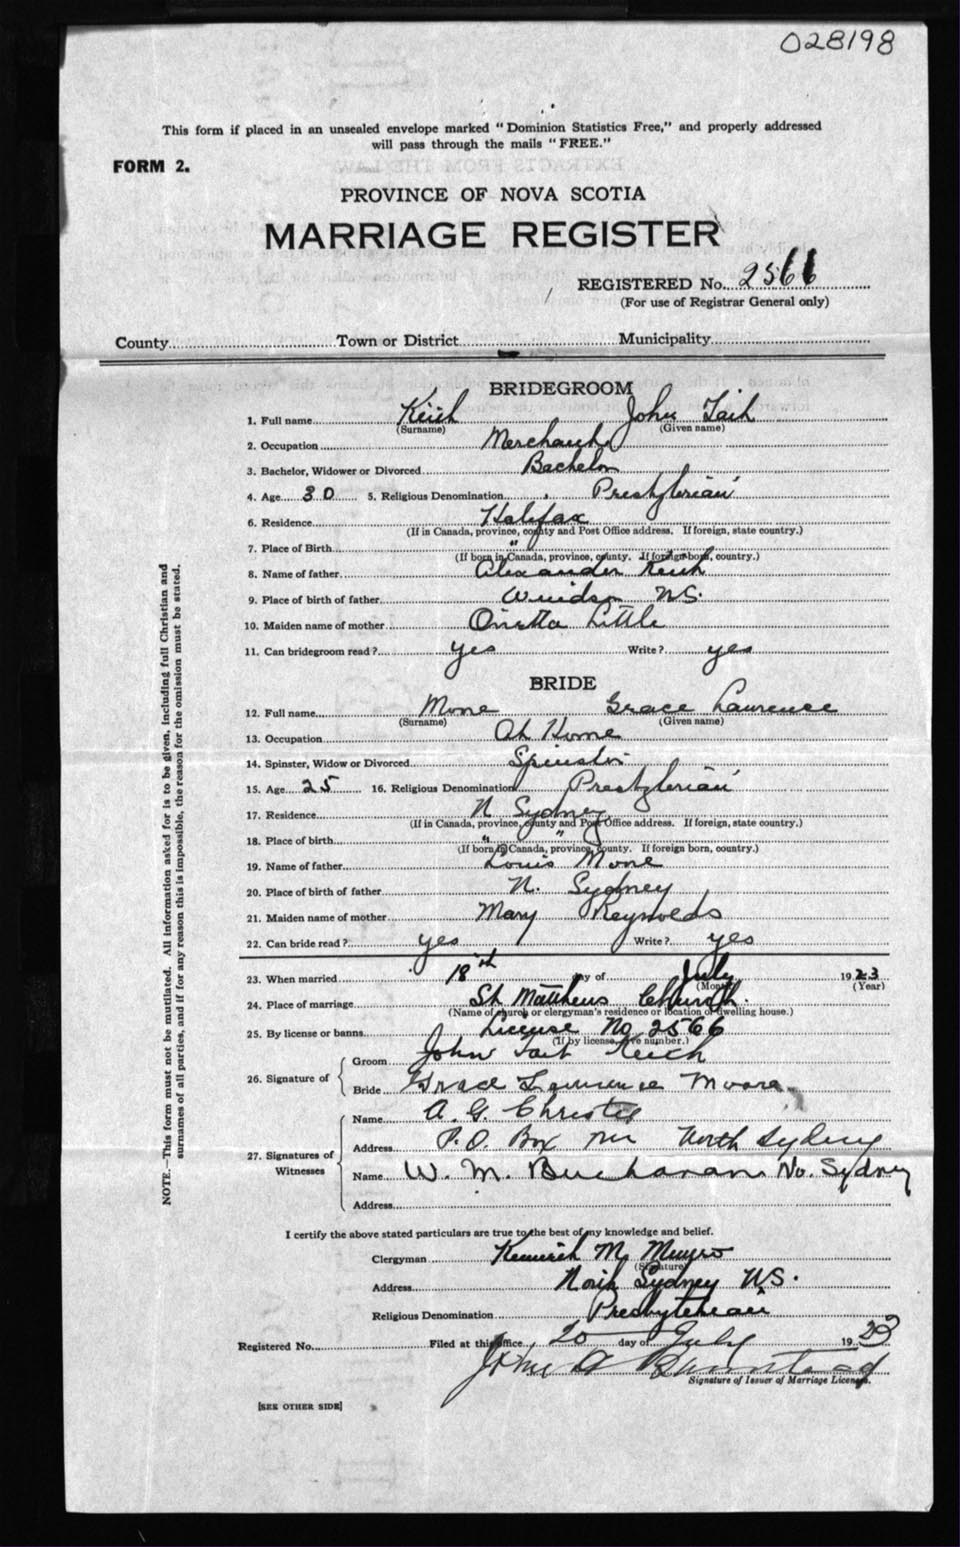 028198
This form if placed in an unsealed envelope marked "Dominion Statistics Free," and properly addressed
will pass through the mails "FREE."
FORM 2.
PROVINCE OF NOVA SCOTIA
MARRIAGE REGISTER
REGISTERED No. 2566
(For use of Registrar General only)
County Town or District Municipality
BRIDEGROOM
1. Full name Keith John Tait
(Surname) (Given name)
2. Occupation Merchant
3. Bachelor, Widower or Divorced Bachelor
4. Age 30 5. Religious Denomination Presbyterian
6. Residence Halifax
(If in Canada, province, county and Post Office address. If foreign, state country.)
7. Place of Birth "
(If born in Canada, province, county. If foreign born, country.)
8. Name of father Alexander Keith
9. Place of birth of father Windsor N.S.
10. Maiden name of mother Oretta Little
11. Can bridegroom read? yes Write? yes
BRIDE
12. Full name Moore Grace Lawrence
(Surname) (Given name)
13. Occupation At Home
14. Spinster, Widow or Divorced Spinster
15. Age 25 16. Religious Denomination Presbyterian
17. Residence N Sydney
(If in Canada, province, county and Post Office address. If foreign, state country.)
18. Place of birth " "
(If born in Canada, province, county. If foreign born, country.)
19. Name of father Louis Moore
20. Place of birth of father N. Sydney
21. Maiden name of mother Mary Reynolds
22. Can bride read? yes Write? yes
23. When married 18th day of July 1923
(Month) (Year)
24. Place of marriage St Matthews Church.
(Name of church or clergyman's residence or location of dwelling house.)
25. By license or banns License No 2566
(If by license, give number.)
26. Signature of Groom John Tait Keith
Bride Grace Lawrence Moore
27. Signatures of Witnesses
Name A. G. Christie
Address P.O. Box North Sydney
Name W. M. Buchanan No. Sydney
Address
I certify the above stated particulars are true to the best of my knowledge and belief.
Clergyman M. Munro
(Signature)
Address North Sydney N.S.
Religious Denomination Presbyterian
Registered No. Filed at this office, 20 day of July 1923
John A
Signature of Issuer of Marriage Licenses.
[SEE OTHER SIDE]
NOTE.—This form must not be mutilated. All information asked for is to be given, including full Christian and
surnames of all parties, and if for any reason this is impossible, the reason for the omission must be stated.